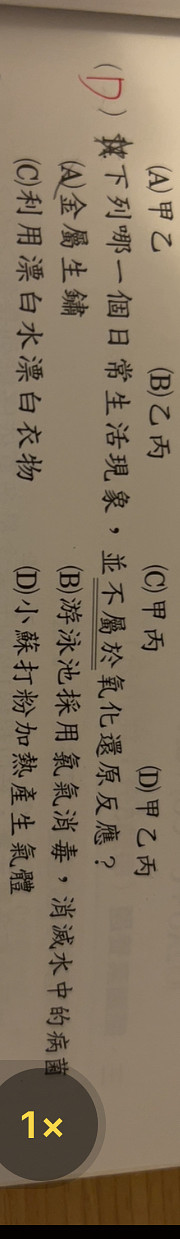 (A)甲乙 (B)乙丙 (C)甲丙 (D)甲乙丙
(D) 下列哪一個日常生活現象，並不屬於氧化還原反應？
(A)金屬生鏽 (B)游泳池採用氯氣消毒，消滅水中的病菌
(C)利用漂白水漂白衣物 (D)小蘇打粉加熱產生氣體
1×